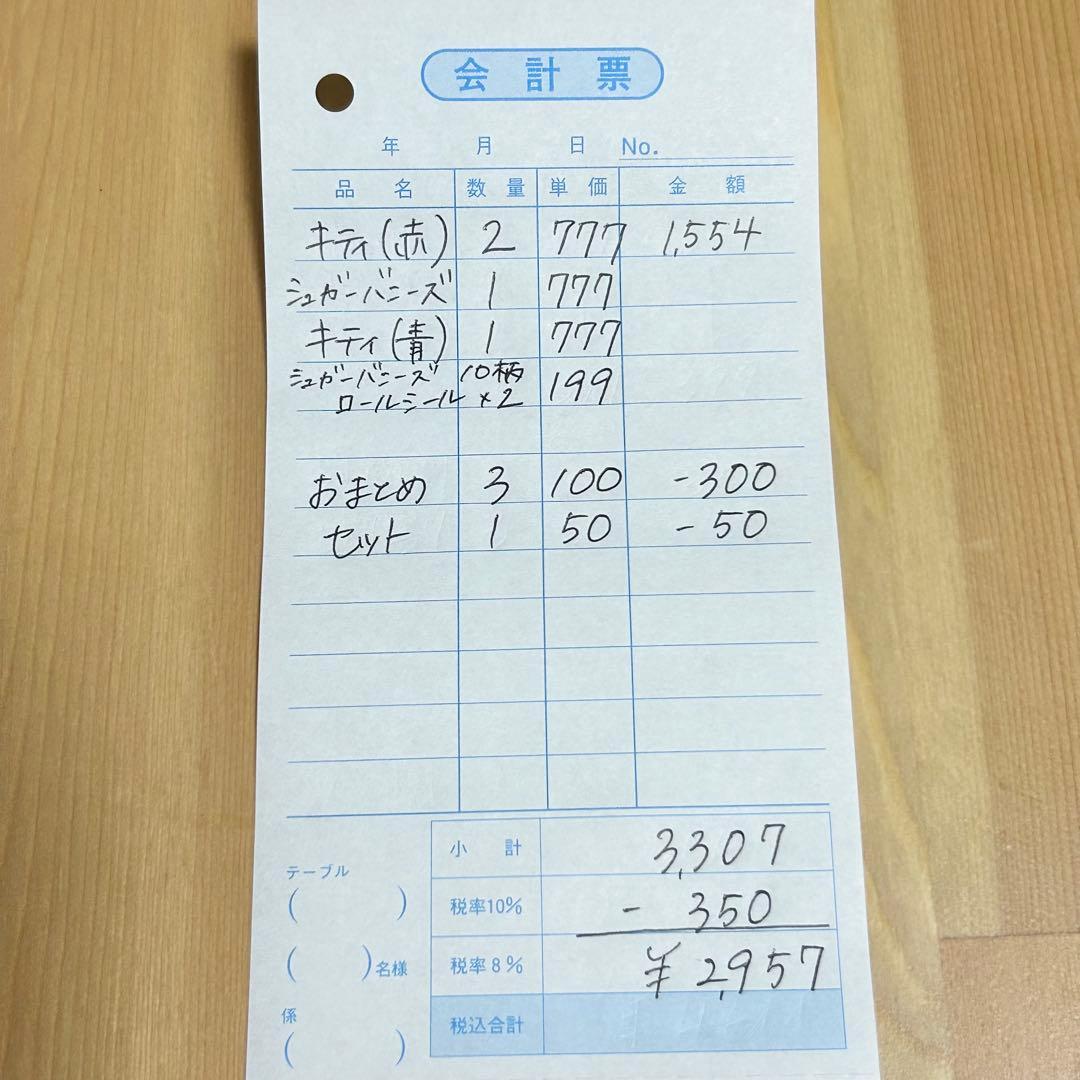 会計票
年 月 日 No.
品名 数量 単価 金額
キティ(赤) 2 777 1,554
シュガーバニーズ 1 777
キティ(青) 1 777
シュガーバニーズ 10柄 199
ロールシール ×2
おまとめ 3 100 -300
セット 1 50 -50
小計 3,307
テーブル
( )
税率10% - 350
( )名様
税率8% ¥2,957
係
( )
税込合計